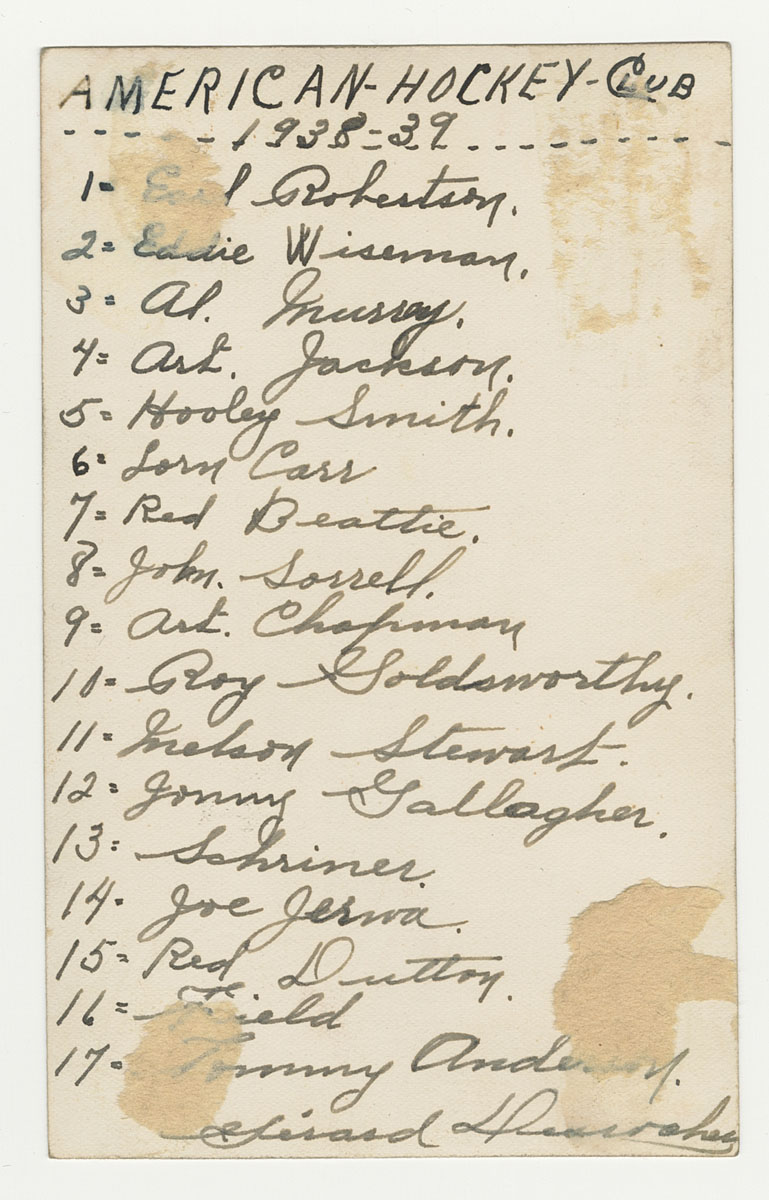 AMERICAN-HOCKEY-CLUB
- - - - - 1938=39 - - - - - - - -
1= Earl Robertson.
2= Eddie Wiseman.
3= Al. Murrey.
4= Art. Jackson.
5= Hooley Smith.
6= Lorn Carr
7= Red Beattie.
8= John. Sorrell.
9= Art. Chapman
10= Roy Goldsworthy.
11= Nelson Stewart.
12= Jonny Gallagher.
13= Schriner.
14= Joe Jerwa.
15= Red Dutton.
16= Field
17= Tommy Anderson.
Gérard